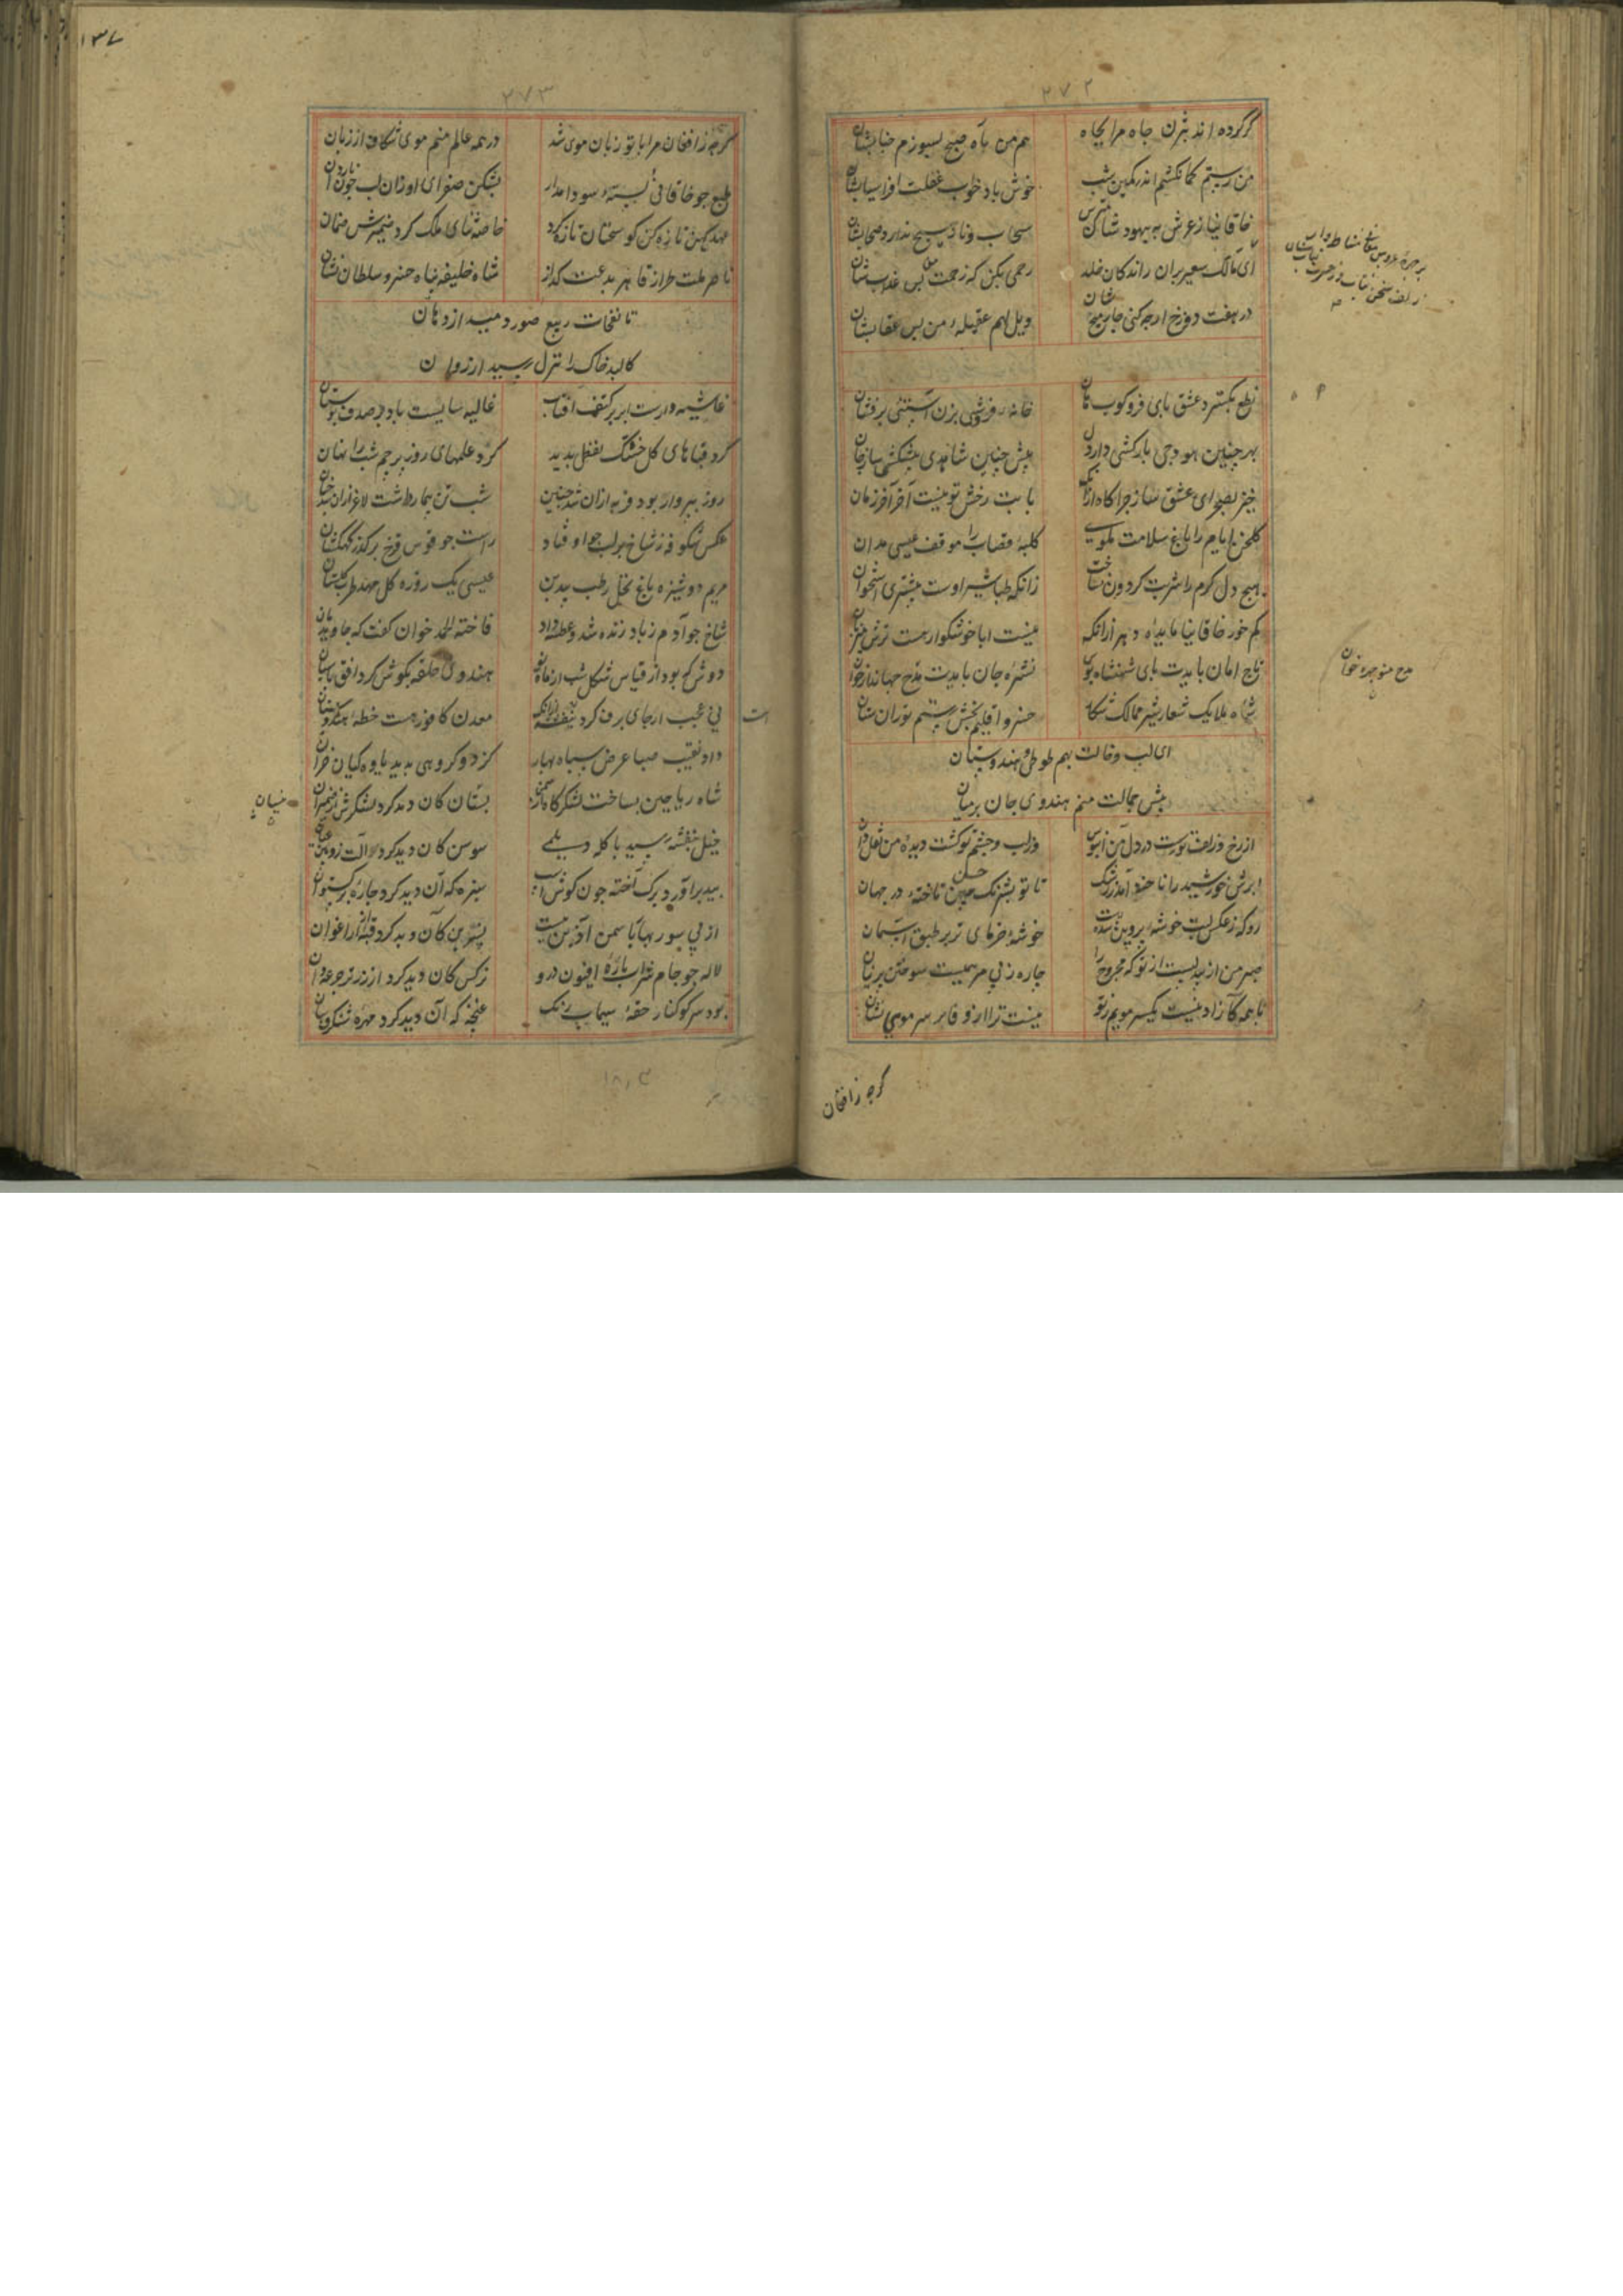 ۲۷۲
گر کرده اند بیژن جاه مرا بچاه
هم من بآه صبح بسوزم جنابشان
من رستم کمانکشم اندر کمین شب
خوش باد خواب غفلت افراسیابشان
خاقانیا ز عرش به یهود شان مترس
ای مالک سعیر بران راندکان خلد
رحمی مکن که زحمت بس عذابشان
در هفت دوزخ ارچه کنی چار میخ شان
ویل لهم عقیله من بس عقابشان
نطع بکسترد عشق پای فرو کوب هان
خانه فروشی بزن آستنی برفشان
بهر چنین هودجی بارکشی دار دل
پیش چنین شاهدی پیشکشی ساز جان
خیز بصحرای عشق ساز چراکاه از آنک
بابت رخش تو نیست آخر آخر زمان
کلخن ایام را باغ سلامت مکوی
کلبه قصاب را موقف عیسی مدان
هیچ دل کرم را شربت کردون نساخت
زانکه طباشیر اوست بیشتری استخوان
کم خور خاقانیا مایده دهر ازانکه
نیست ابا خوشکوار هست ترش میزبان
تاج امان بایدت پای شهنشاه بوس
نشره جان بایدت مدح جهاندار خوان
شاه ملایک شعار شیر ممالک شکار
خسرو اقلیم بخش رستم توران ستان
مدح منوچهر خوان
ای لب و خالت بهم طوطی و هندوستان
پیش جمالت منم هندوی جان برمیان
از رخ و زلف تو رست در دل من آبنوس
وز لب و چشم تو کشت دیده من نعل دان
ابرش خورشید را ناخنه آمد ز رشک
تا تو بشبرنک حسن تاخته در جهان
رو که ز عکس لبت خوشه پروین شدست
خوشه خرمای تر بر طبق آسمان
چاره ز بی مرهمیست سوختن پرنیان
با همه کازاد نیست یکسر مویم ز تو
نیست ترا از وفا بر سر مویی نشان
کرچه ز افغان
۱۳۷
۲۷۳
کرچه ز افغان مرا با تو زبان موی شد
در همه عالم منم موی شکاف از زبان
طبع چو خاقانی بسته سودا مدار
بشکن صفرای او زان لب چون ناردان
عهد کهن تازه کن کو سخنان تازه کرد
خاصه ثنای ملک کرد ضمیرش ضمان
ناصر ملت طراز قاهر بدعت کداز
شاه خلیفه پناه خسرو سلطان نشان
تا نفحات ربیع صور دمید از دهان
کالبد خاک را نزل رسید از روان
غاشیه دارست ابر بر کتف آفتاب
غالیه سایست باد بر صدف بوستان
کرد قباهای کل خشتک نفغل پدید
کرد علمهای روز پرچم شب را نهان
روز به پروار بود فربه ازان شد چنین
شب تن بیمار داشت لاغر ازان شد چنان
عکس شکوفه ز شاخ بر لب جو اوفتاد
راست چو قوس قزح بر کذر کهکشان
مریم دوشیزه باغ نخل رطب بید بن
عیسی یک روزه کل مهد طرب کلستان
شاخ چو آدم ز باد زنده شد و عطسه داد
فاخته الحمد خوان کفت که جاوید مان
دوش که بود از قیاس شکل شب از ماه نو
هندوی حلقه بکوش کرد افق پاسبان
نی عجب ار جای برف کرد بنفشه ازانک
معدن کافور هست خطه هندوستان
داد نقیب صبا عرض سپاه بهار
کز دو کروهی بدید یاوه کیان خزان
شاه ریاحین بساخت لشکرکاه از سمن
نیستان کان دید کرد لشکرش از ضیمران
خیل بنفشه رسید با کله دیلمی
سوسن کان دید کرد آلت زوبین عیان
بید برآورد برک آخته چون کوش اسب
سبزه که آن دید کرد چاره بر کستوان
از پی سور بهار با سمن آذین ببست
نسرین کان دید کرد قبه از ارغوان
لاله چو جام شراب پاره افیون درو
نرکس کان دید کرد از زر تر جرعه دان
بود سر کوکنار حقه سیماب رنک
غنچه که آن دید کرد مهره شنکرف سان